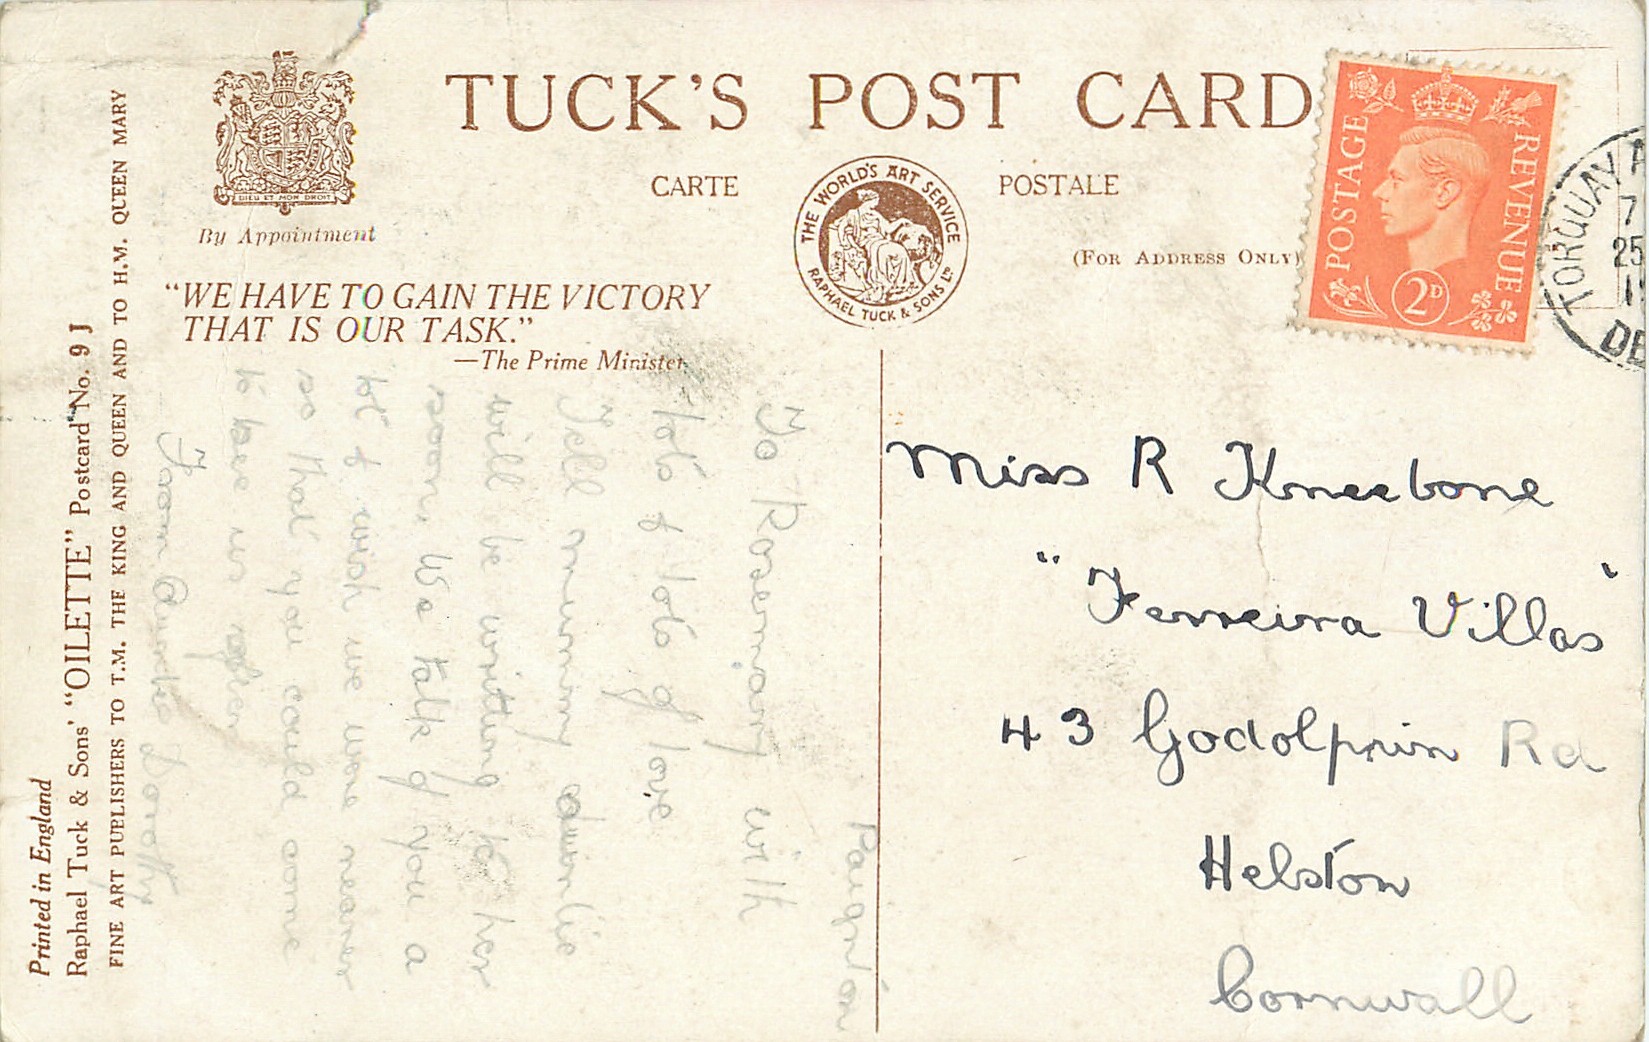 TUCK'S POST CARD
CARTE POSTALE
(FOR ADDRESS ONLY)
DIEU ET MON DROIT
By Appointment
THE WORLD'S ART SERVICE
RAPHAEL TUCK & SONS LTD
"WE HAVE TO GAIN THE VICTORY
THAT IS OUR TASK."
—The Prime Minister
POSTAGE REVENUE
2D
TORQUAY
7
25
DE
Printed in England
Raphael Tuck & Sons' "OILETTE" Postcard No. 9 J
FINE ART PUBLISHERS TO T.M. THE KING AND QUEEN AND TO H.M. QUEEN MARY
Paignton
To Rosemary with
lots & lots of love
Tell mummy auntie
will be writing to her
soon. We talk of you a
lot & wish we were nearer
so that you could come
to see us often
From Auntie Dorothy
Miss R Kneebone
"Ferreira Villas"
43 Godolphin Rd
Helston
Cornwall